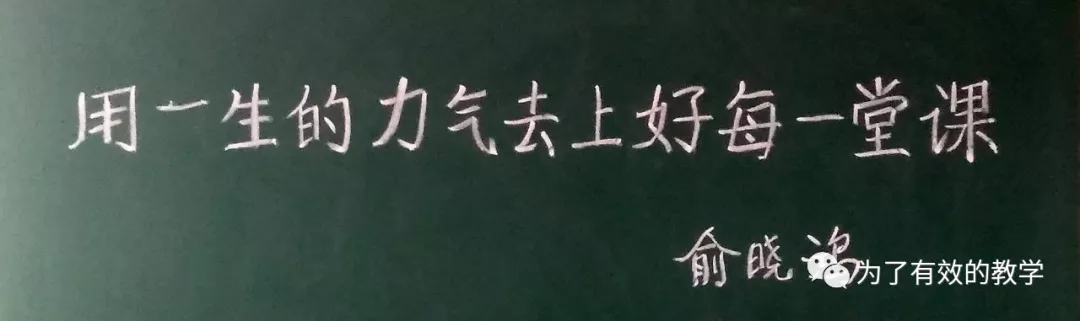 用一生的力气去上好每一堂课
俞晓
为了有效的教学